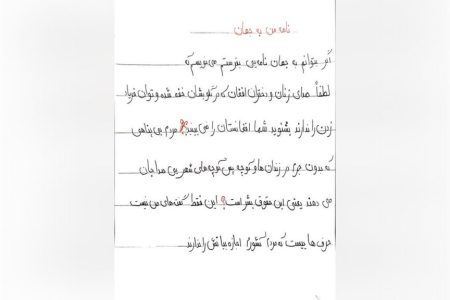 نامه من به جهان
اگر بتوانم به جهان نامه‌یی بفرستم می‌نویسم که
لطفاً صدای زنان و دختران افغان که در گلویشان خفه شده و توان فریاد
زدن را ندارند بشنوید. شما افغانستان را نمی‌بینید؟ مردم بی پناهی
که بدون جرم در زندان ها و کوچه پس کوچه‌های شهر بی صدا جان
می دهند یعنی این حقوق بشر است؟ این فقط گفته‌های من نیست
حرف ها بیست که مردم کشورم اجازه بیانش را ندارند